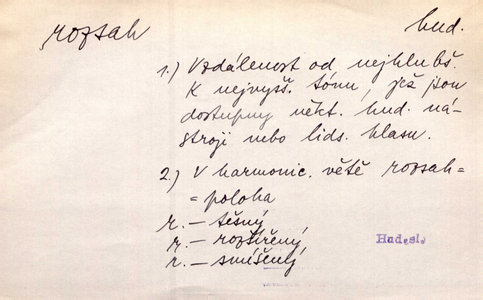 rozsah
hud.
1.) Vzdálenost od nejhlubš.
k nejvyšš. tónu, jež jsou
dostupny někt. hud. ná-
stroji nebo lids. hlasu.
2.) V harmonic. větě rozsah=
=poloha
r. – těsný
r. – rozšířený
r. – smíšený
Hud.sl.